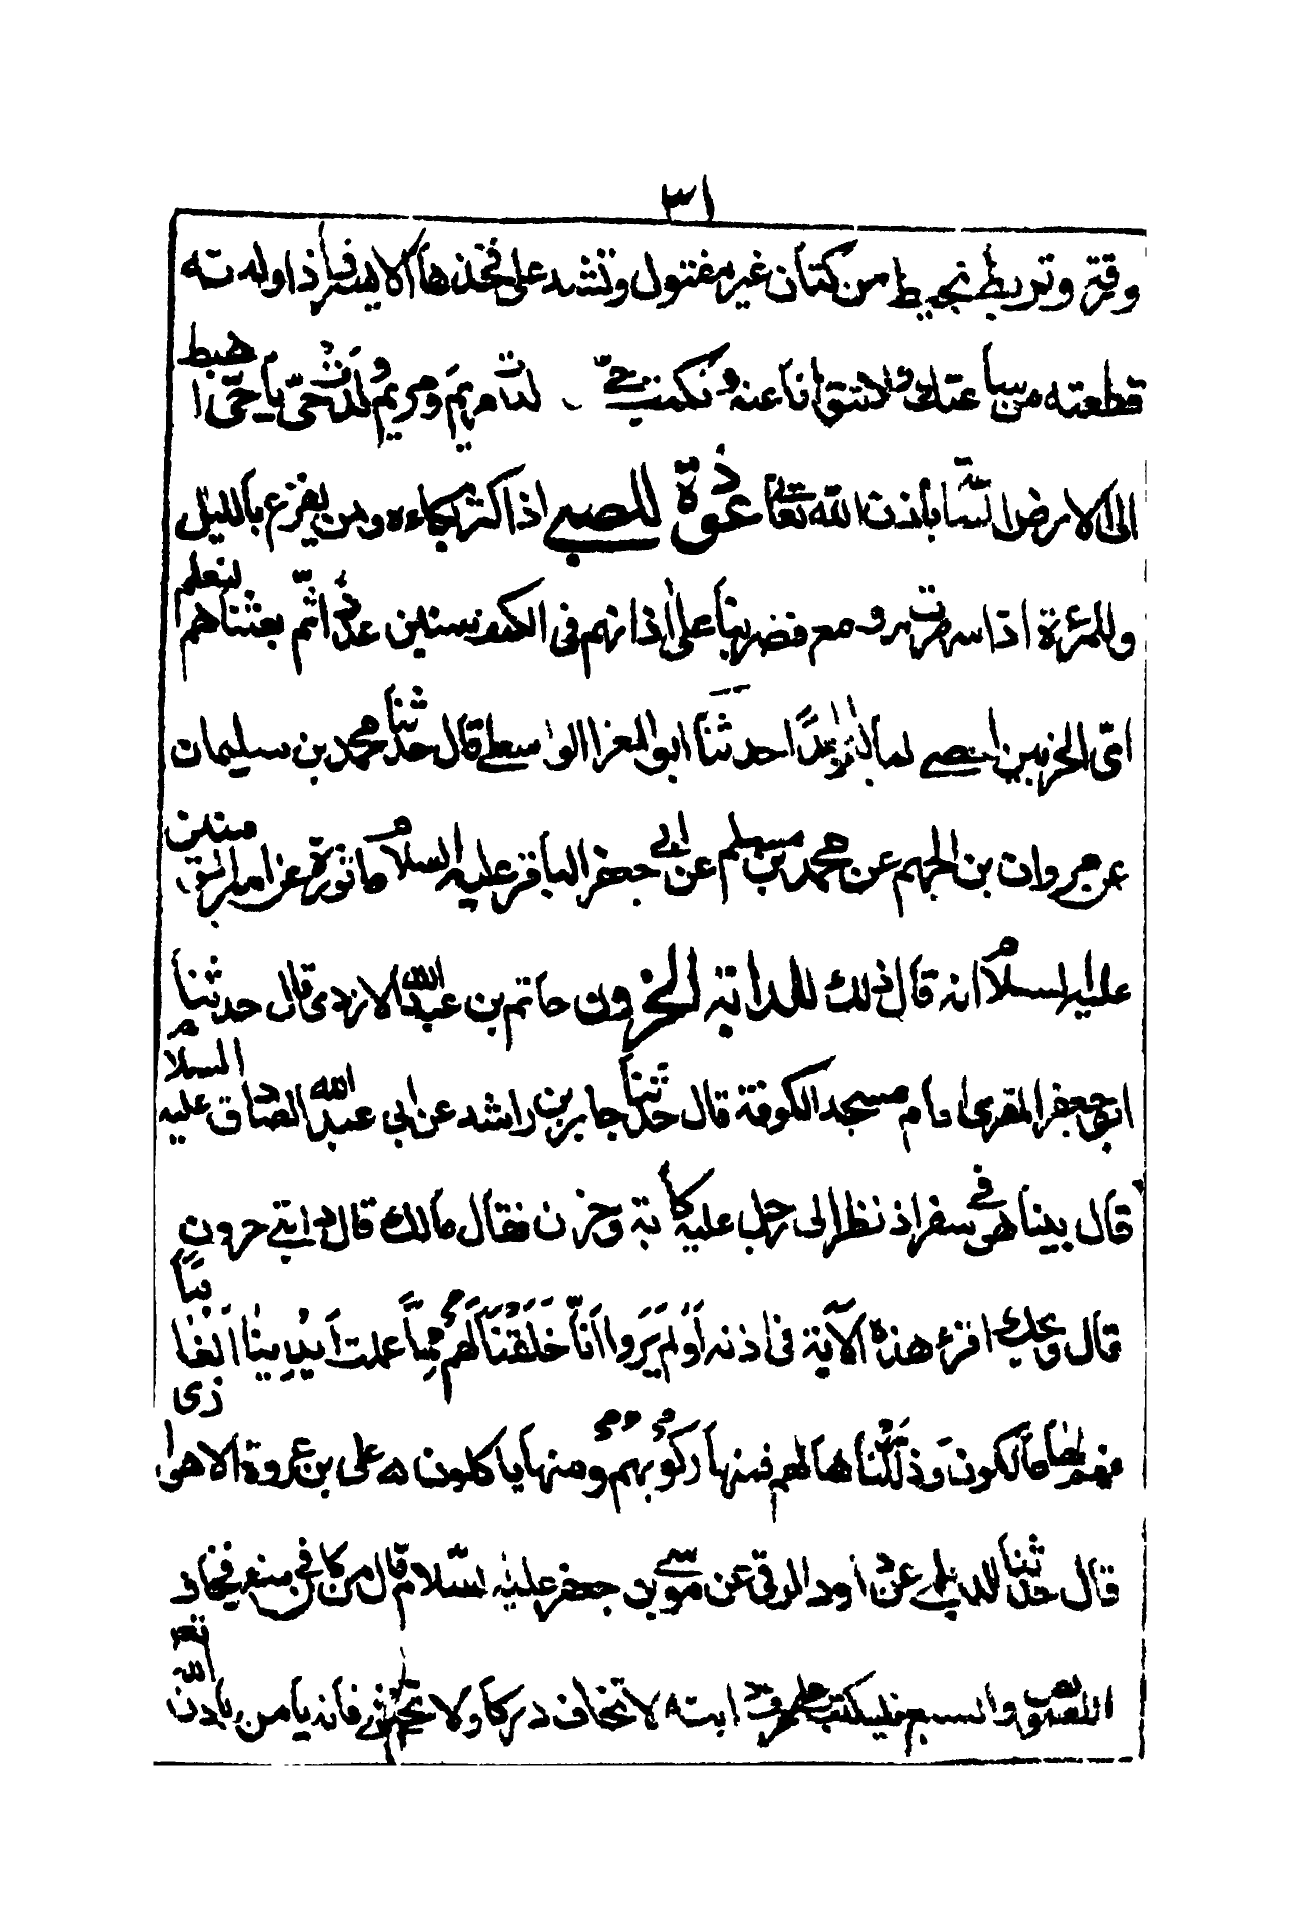 ٣١
ورقة وتربط بخيط من كتان غير مفتول وتشد على فخذها الايسر فاذا ولدته
قطعته من ساعتك ولا تتوانا عنه وتكتب حى ولدت مريم ومريم ولدت حى يا حى اهبط
الى الارض السّاعة باذن الله تعا عوذة للصبى اذا كثر بكاءه ومن يفزع بالليل
وللمرئة اذا سهرت من وجع فضربنا على اذانهم فى الكهف سنين عددا ثمّ بعثناهم لنعلم
اىّ الحزبين احصى لما لبثوا امدًا حدثنا ابو المغرا الواسطى قال حدثنا محمد بن سليمان
عن مروان بن الجهم عن محمد بن مسلم عن ابى جعفر الباقر عليه السلام ماثورة عن امير المؤمنين
عليه السلام انه قال ذلك للدابة الحرون حاتم بن عبد الله الازدى قال حدثنا
ابو جعفر المقرى امام مسجد الكوفة قال حدثنا جابر بن راشد عن ابى عبد الله الصادق عليه السلام
قال بينا هو فى سفر اذ نظر الى رجل عليه كابة وحزن فقال مالك قال دابتى حرون
قال ويحك اقرء هذه الآية فى اذنه اَوَلَم يَرَوا اَنّا خَلَقْنَا لَهُم مِمّا عملت اَيدِينا انعاما
فهم لها مالكون وذلّلناها لهم فمنها ركوبهم ومنها ياكلون ه على بن عروة الاهوازى
قال حدثنا الديلمى عن داود الرقى عن موسى بن جعفر عليه السّلام قال من كان فى سفر فخاف
اللصوص والسبع فليكتب على عرف دابته لا تخاف دركا ولا تخشى فانه يامن باذن الله تعا